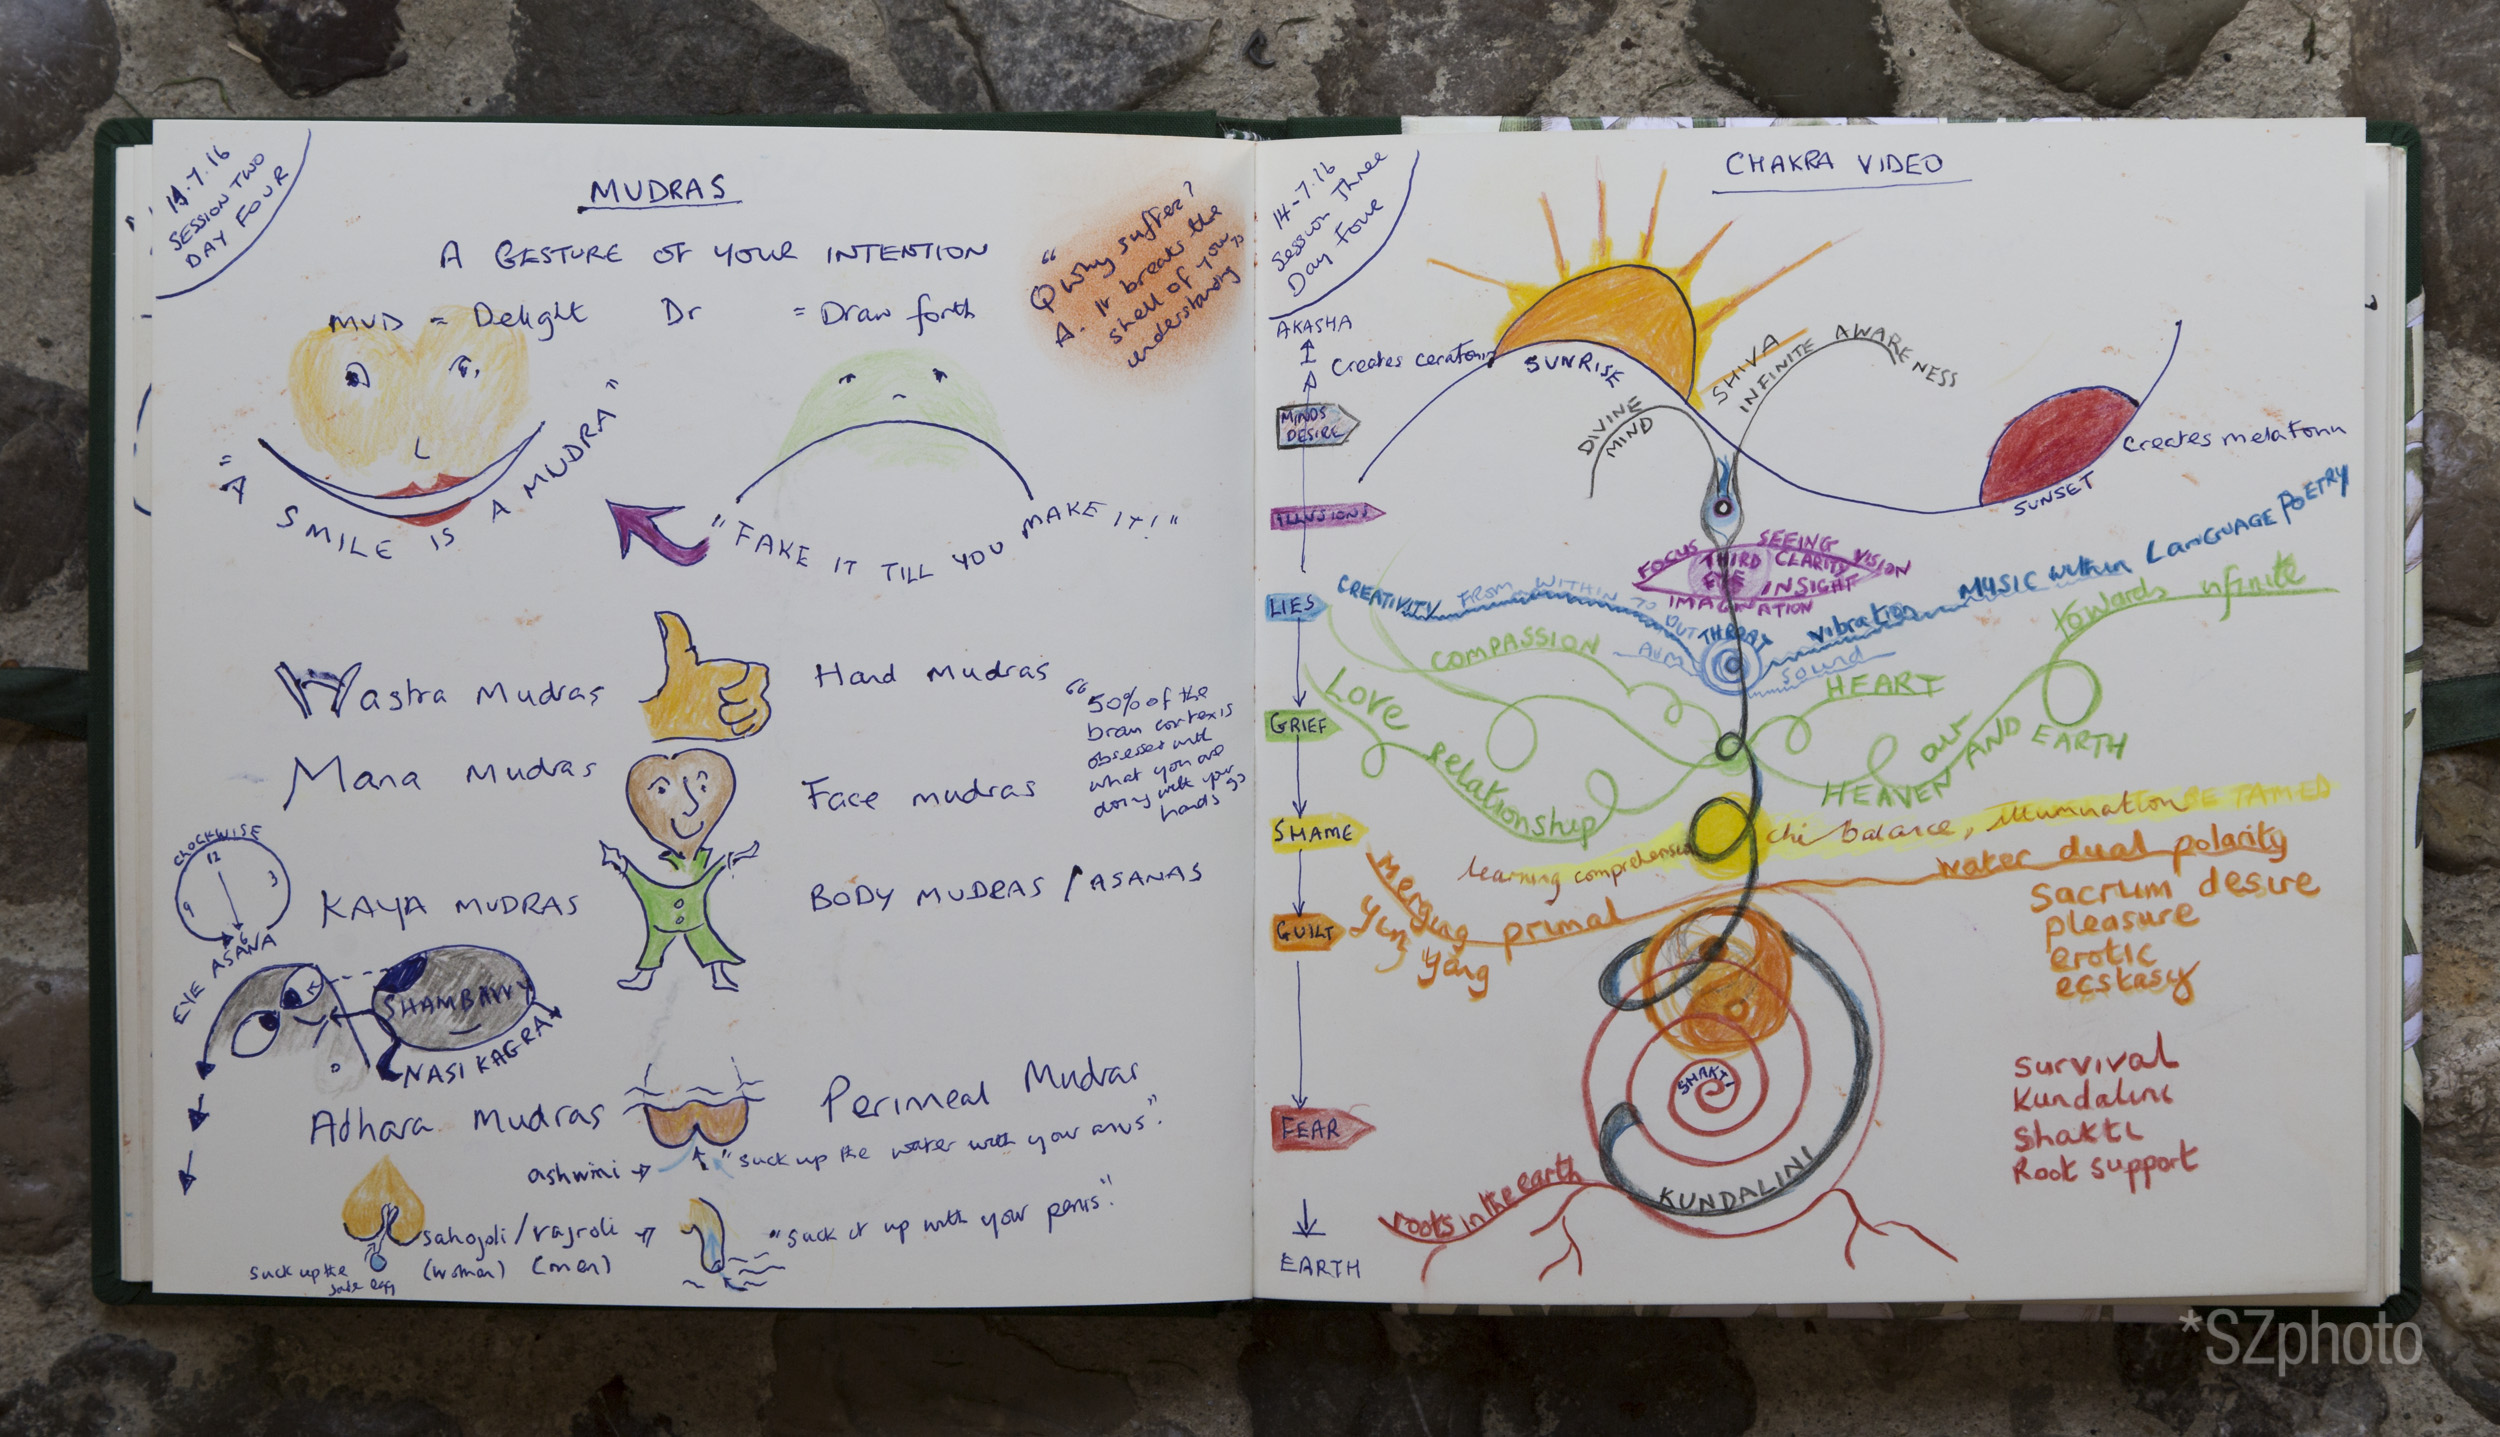 14.7.16
SESSION TWO
DAY FOUR
MUDRAS
A GESTURE OF YOUR INTENTION
MUD = Delight Dr = Draw forth
"Q Why suffer?
A. It breaks the
shell of your
understanding"
"A SMILE IS A MUDRA"
"FAKE IT TILL YOU MAKE IT!"
Hastra Mudras
Hand mudras
Mana mudras
Face mudras
"50% of the
brain cortex is
obsessed with
what you are
doing with your
hands"
CLOCKWISE
12
3
6
9
EYE ASANA
KAYA MUDRAS
BODY MUDRAS / ASANAS
SHAMBAVVY
NASIKAGRA
Adhara Mudras
Perineal Mudras
ashwini
"suck up the water with your anus".
sahojoli/vajroli
(women) (men)
"suck it up with your penis".
suck up the
jade egg
14-7.16
Session Three
Day Four
CHAKRA VIDEO
AKASHA
Creates ceratonin
SUNRISE
SHIVA
INFINITE AWARENESS
DIVINE
MIND
MINDS
DESIRE
Creates melatonin
SUNSET
ILLUSIONS
FOCUS SEEING VISION
THIRD CLARITY
EYE INSIGHT
IMAGINATION
LIES
CREATIVITY FROM WITHIN TO OUT THROAT vibration MUSIC within LANGUAGE POETRY
sound
COMPASSION
HEART
towards infinite
LOVE relationship
GRIEF
air
HEAVEN AND EARTH
SHAME
learning comprehension
chi balance, illumination BE TAMED
GUILT
Merging primal
Yin
Yang
water dual polarity
Sacrum desire
pleasure
erotic
ecstasy
SHAKTI
Survival
Kundalini
Shakti
Root support
FEAR
KUNDALINI
roots in the earth
EARTH
*SZphoto